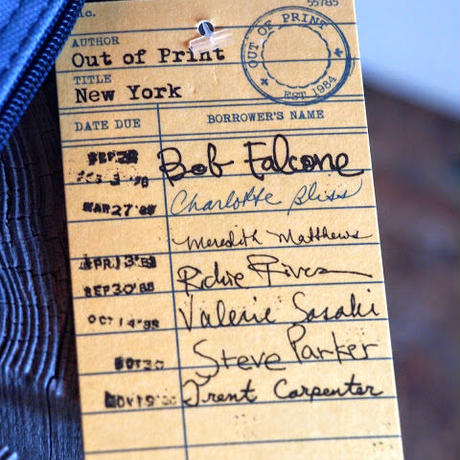 55785
AUTHOR
Out of Print
TITLE
New York
OUT OF PRINT
EST 1984
DATE DUE BORROWER'S NAME
Bob Falcone
Charlotte Bliss
MAR 27
Meredith Matthews
APR 13
Richie Rivera
SEP 30 '88
Valerie Sasaki
OCT 14 '88
Steve Parker
Trent Carpenter